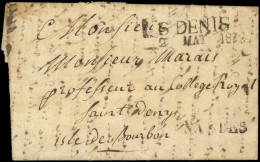 A Monsieur
ST DENIS
2 MAI
Monsieur Marais
professeur au College Royal
Saint Denys
isle de Bourbon